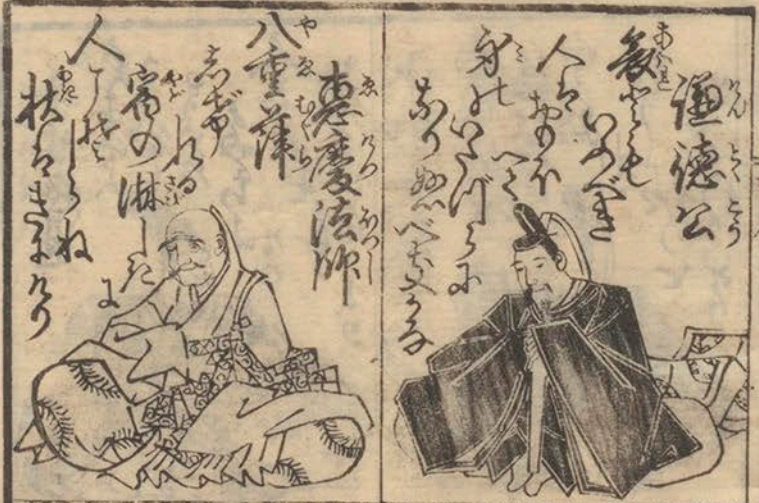 謙徳公
哀とも
いふべき
人はおもほ
へで
身のいたづらに
なりぬべきかな
恵慶法師
八重葎
しげ
れる
宿の淋しきに
人こそしらね
秋はきにけり